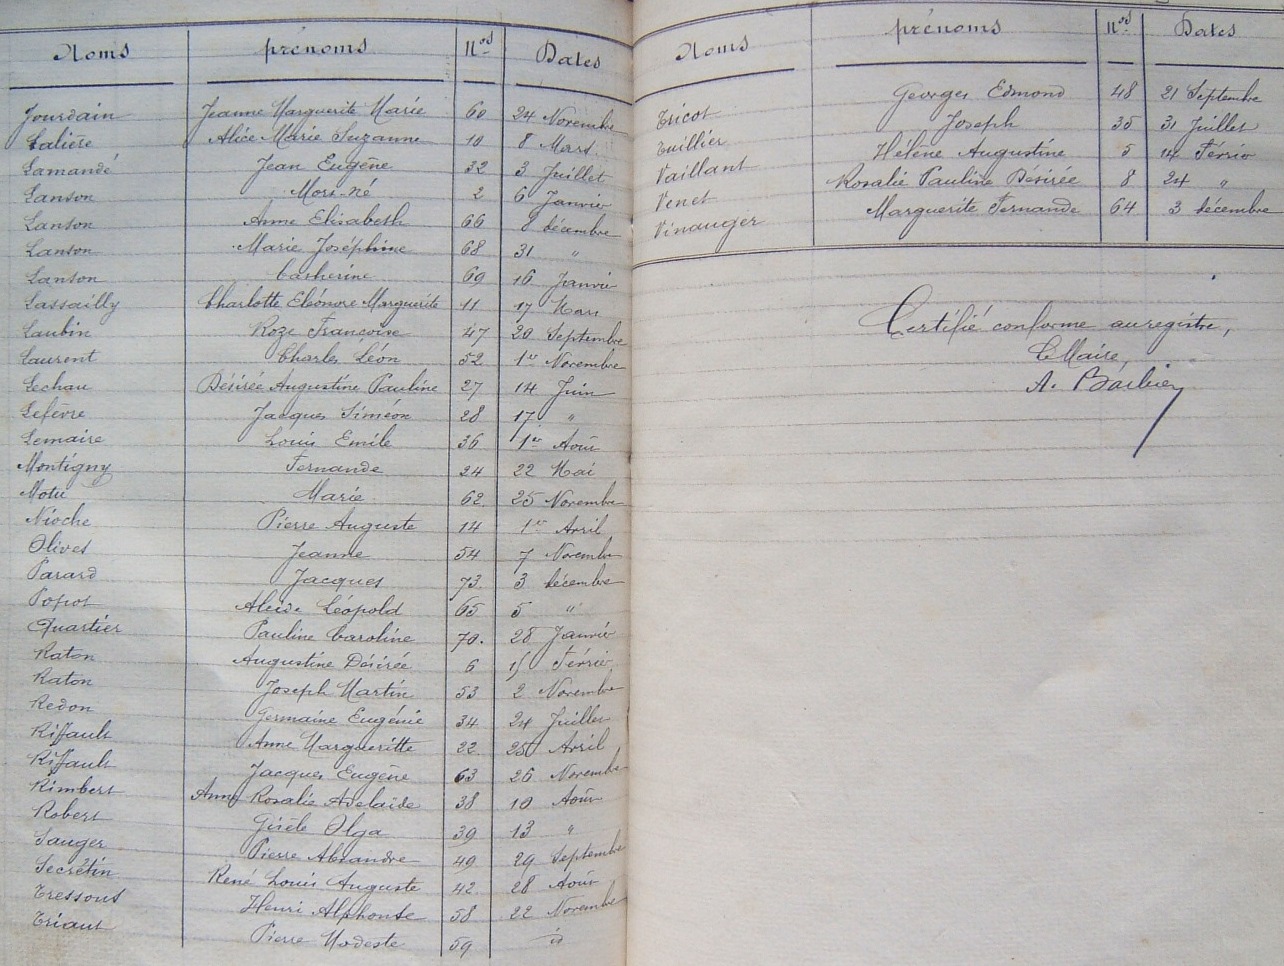 Noms prénoms Nos Dates
Jourdain Jeanne Marguerite Marie 60 24 Novembre
Lalière Alice Marie Suzanne 10 8 Mars
Lamandé Jean Eugène 32 3 Juillet
Lanson Mort-né 2 6 Janvier
Lanson Anne Elisabeth 66 8 décembre
Lanson Marie Joséphine 68 31 "
Lanson Catherine 69 16 Janvier
Lassailly Charlotte Eléonore Marguerite 11 17 Mars
Laubin Roze Françoise 47 20 Septembre
Laurent Charles Léon 52 1er Novembre
Lechau Désirée Augustine Pauline 27 14 Juin
Lefèvre Jacques Siméon 28 17 "
Lemaire Louis Emile 36 1er Août
Montigny Fernande 24 22 Mai
Motu Marie 62 25 Novembre
Nioche Pierre Auguste 14 1er Avril
Olivet Jeanne 54 7 Novembre
Parard Jacques 73 3 décembre
Popot Alcide Léopold 65 5 "
Quartier Pauline Caroline 70. 28 Janvier
Raton Augustine Désirée 6 15 Février
Raton Joseph Martin 53 2 Novembre
Redon Germaine Eugénie 34 24 Juillet
Riffault Anne Margueritte 22 25 Avril
Riffault Jacques Eugène 63 26 Novembre
Rimbert Anne Rosalie Adelaïde 38 10 Août
Robert Gisèle Olga 39 13 "
Sauger Pierre Alexandre 49 29 Septembre
Secrétin René Louis Auguste 42 28 Août
Tressout Henri Alphonse 58 22 Novembre
Triaut Pierre Modeste 59 id
Noms prénoms Nos Dates
Tricot Georges Edmond 48 21 Septembre
Tuillier Joseph 35 31 Juillet
Vaillant Hélène Augustine 5 14 Février
Venet Rosalie Pauline Désirée 8 24 "
Vinauger Marguerite Fernande 64 3 décembre
Certifié conforme au registre,
Le Maire,
A. Barbier